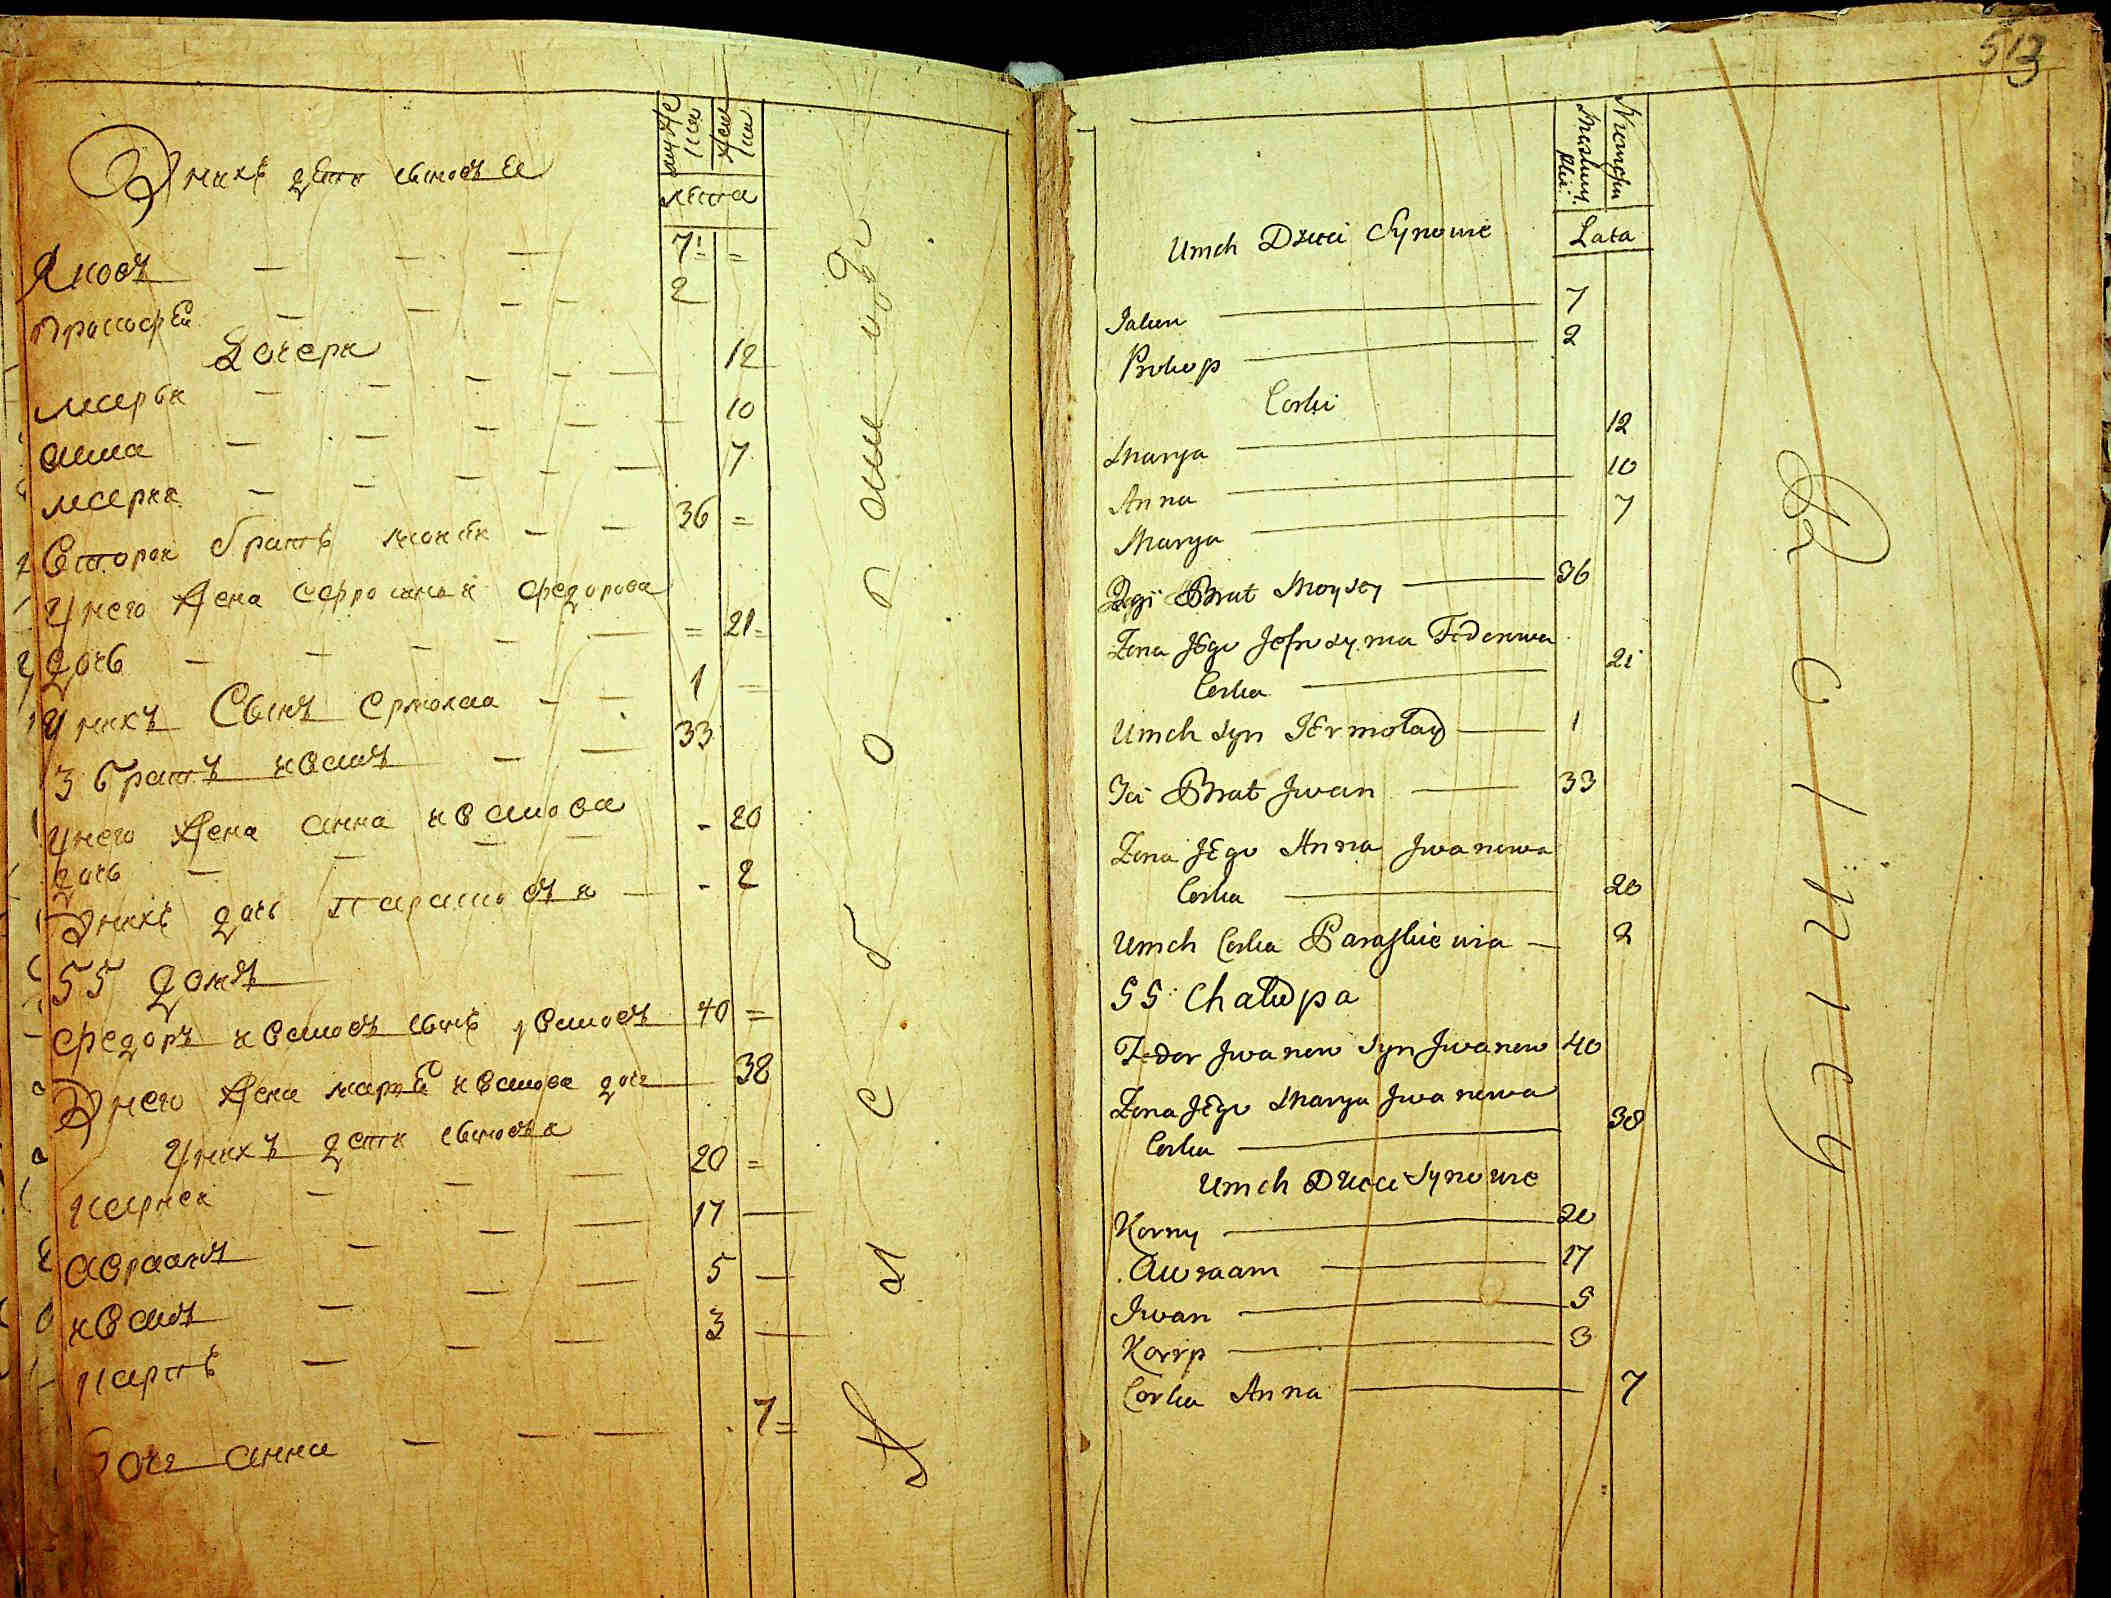 У нихъ дети сыновѣ
мужеска
женска
лета
Яковъ — — — 7 =
Прокофей — — — 2
Дочери
Марья — — — — 12
Анна — — — — 10
Марья — — — — 7
Второй братъ Моисей — — 36 =
У него жена Ефросинья Федорова
дочь — — — — = 21 =
У нихъ Сынъ Ермолай — — 1 =
3 братъ иванъ — — 33
У него жена Анна ивановa
дочь — — — — - 20
У нихъ дочь Парасковья — - 2
55 домъ
Федоръ ивановъ сынъ ивановъ 40 =
У него жена Марья иванова дочь 38
У нихъ дети сыновья
Карней — — — 20 =
Авраамъ — — — 17 —
иванъ — — — 5 —
Карпъ — — — 3 —
Дочь Анна — — — 7 =
513
Lata
Umch Dzieci Synowie
Jakow 7
Prokop 2
Corki
Marya 12
Anna 10
Marya 7
Brat Moysey 36
Zona Jego Jefrosynia Fedorowa
Corka 21
Umch Syn JErmołay 1
Brat Jwan 33
Zona JEgo Anna Jwanowa
Corka 20
Umch Corka Paraskiewia 2
55 Chałupa
Fedor Jwanow Syn Jwanow 40
Zona JEgo Marya Jwanowa
Corka 38
Umch Dzieci Synowie
Korny 20
Awraam 17
Jwan 5
Korrp 3
Corka Anna 7
Rolnicy